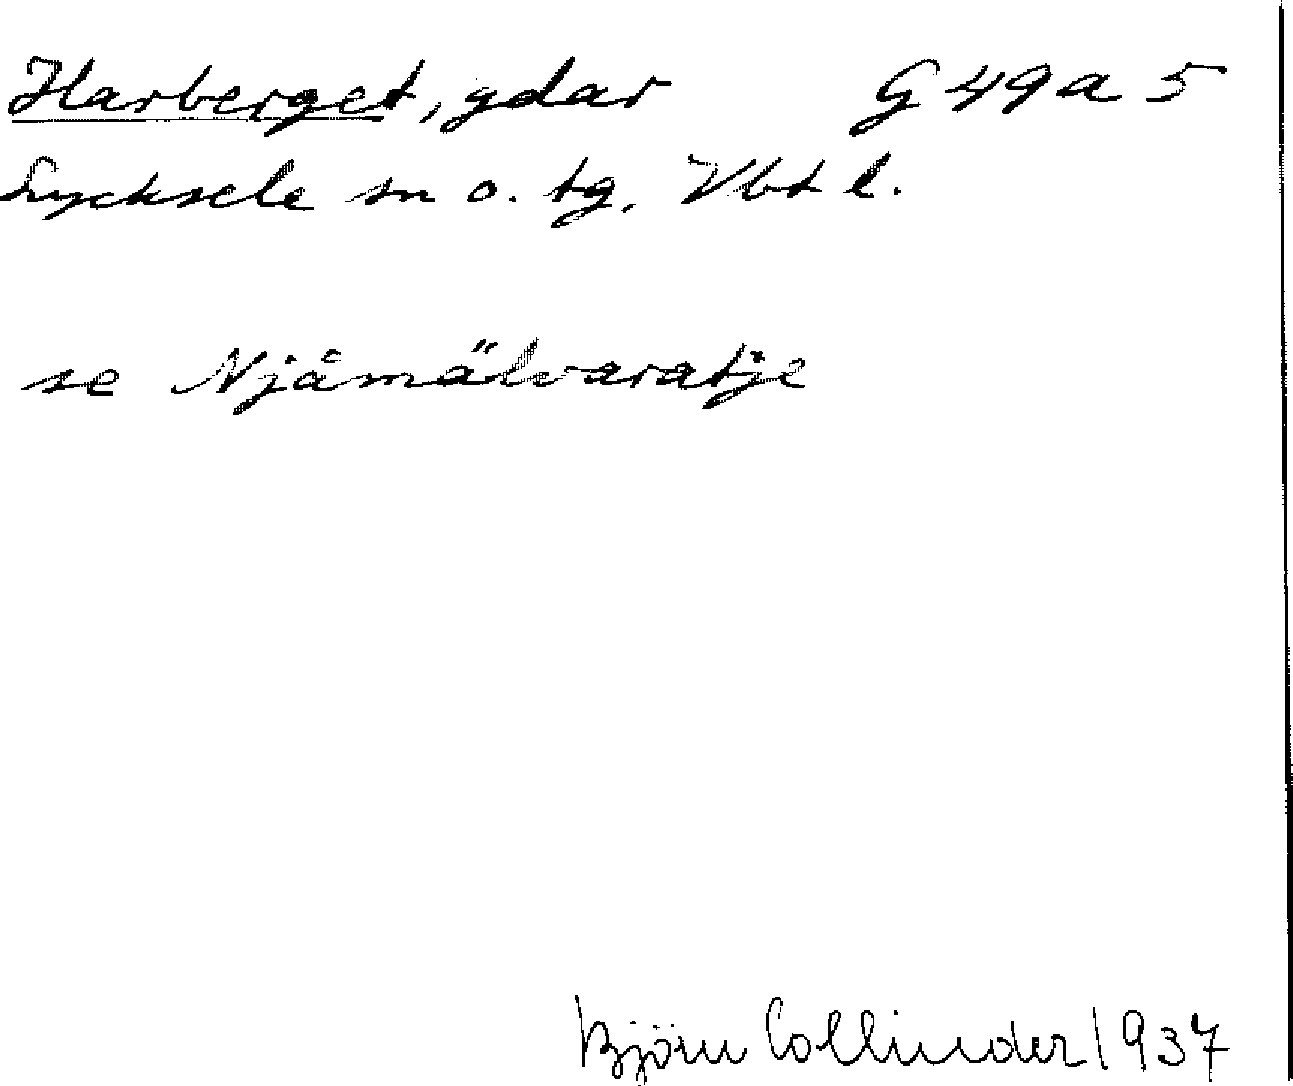 Harberget, gdar G 49 a 5
Lycksele sn o. tg. Vbt l.
se Njåmälvaratje
Björn Collinder 1937